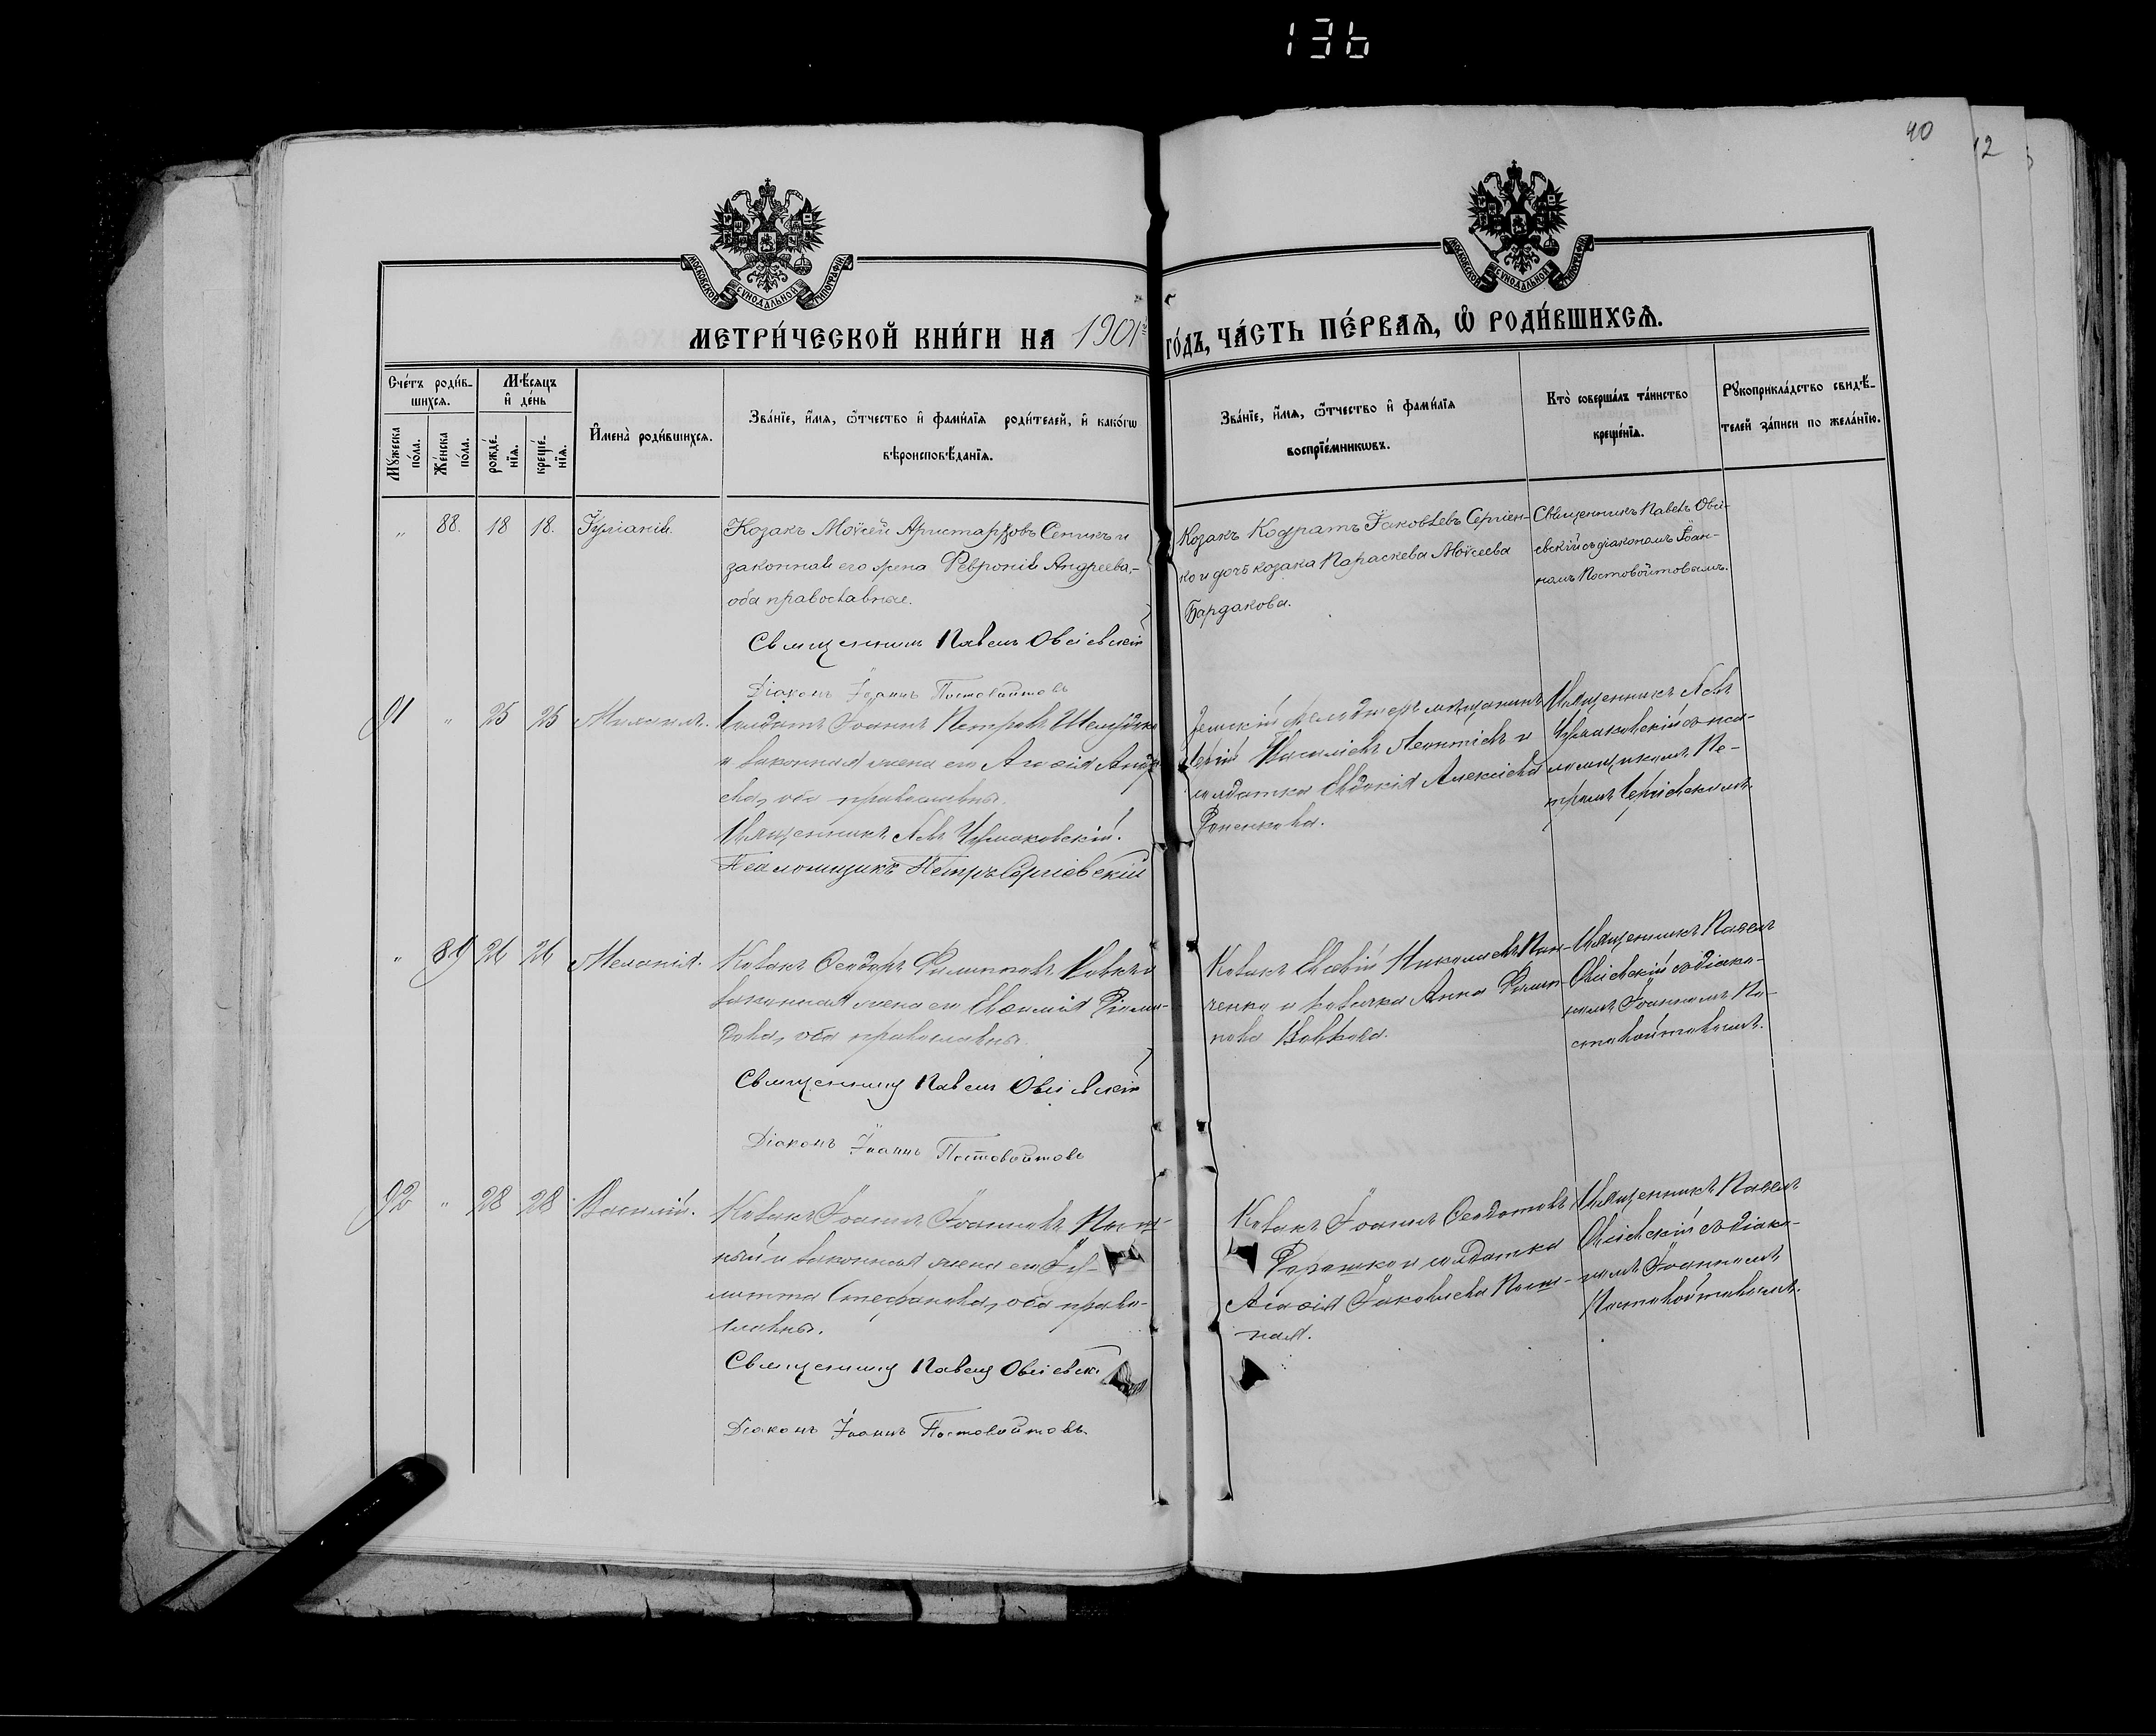 136
40
12
МОСКОВСКОЙ СУНОДАЛЬНОЙ ТИПОГРАФІИ
МОСКОВСКОЙ СУНОДАЛЬНОЙ ТИПОГРАФІИ
МЕТРИ́ЧЕСКОЙ КНИ́ГИ НА 1901 ГО́ДЪ, ЧА́СТЬ ПЕ́РВАѦ, Ѡ҆ РОДИ́ВШИХСѦ.
Сче́тъ роди́в-
шихсѧ.
Мꙋ́жеска
по́ла.
Же́нска
по́ла.
Мѣ́сѧцъ
и҆ де́нь
рожде́-
нїѧ.
креще́-
нїѧ.
И҆мена̀ роди́вшихсѧ.
Зва́нїе, и҆́мѧ, ѻ҆́тчество и҆ фами́лїѧ роди́телей, и҆ како́гѡ
вѣроисповѣ́данїѧ.
Зва́нїе, и҆́мѧ, ѻ҆́тчество и҆ фами́лїѧ
воспрїе́мникѡвъ.
Кто̀ соверша́лъ та́инство
креще́нїѧ.
Рꙋкоприкла́дство свидѣ́-
телей за́писи по жела́нїю.
„ 88. 18 18. Іуліанія.
Козакъ Моѵсей Аристарховъ Сеникъ и
законная его жена Февронія Андреева,-
оба православные.
Священникъ Павелъ Овсіевскій
Діаконъ Іоаннъ Постовойтовъ
Козакъ Кодратъ Іаковлевъ Сергіен-
ко и дочь козака Параскева Моѵсеева
Бардакова.
Священникъ Павелъ Овсі-
евскій съ діакономъ Іоан-
номъ Постовойтовымъ.
91 „ 25 25 Михаилъ.
Солдатъ Іоаннъ Петровъ
и законная жена его Агаѳія Андре
ева, оба православны.
Священникъ Левъ Чурмаковскій.
Псаломщикъ Петръ Сергіевскій
Земскій фельдшеръ мѣщанинъ
Сергій Васильевъ Леонтіевъ и
солдатка Евдокія Алексіева
Фоменкова.
Священникъ Левъ
Чурмаковскій съ пса-
ломщикомъ Пе-
тромъ Сергіевскимъ.
„ 89 26 26 Меланія.
Козакъ Ѳеодоръ Филипповъ Вовкъ и
законная жена его Евѳимія Діоми-
дова, оба православны.
Священникъ Павелъ Овсіевскій
Діаконъ Іоаннъ Постовойтовъ
Козакъ Евѳимій Николаевъ Пан-
ченко и козачка Анна Филип-
пова Вовкова.
Священникъ Павелъ
Овсіевскій съ діако-
номъ Іоанномъ По-
стовойтовымъ.
92 „ 28 28 Василій.
Козакъ Іоаннъ Іоанновъ Пост-
ный и законная жена его Іу-
литта Стефанова, оба право-
славны.
Священникъ Павелъ Овсіевск
Діаконъ Іоаннъ Постовойтовъ.
Козакъ Іоаннъ Ѳеодотовъ
и солдатка
Агаѳія Іаковлева Пост-
ная.
Священникъ Павелъ
Овсіевскій съ діако-
номъ Іоанномъ
Постовойтовымъ.